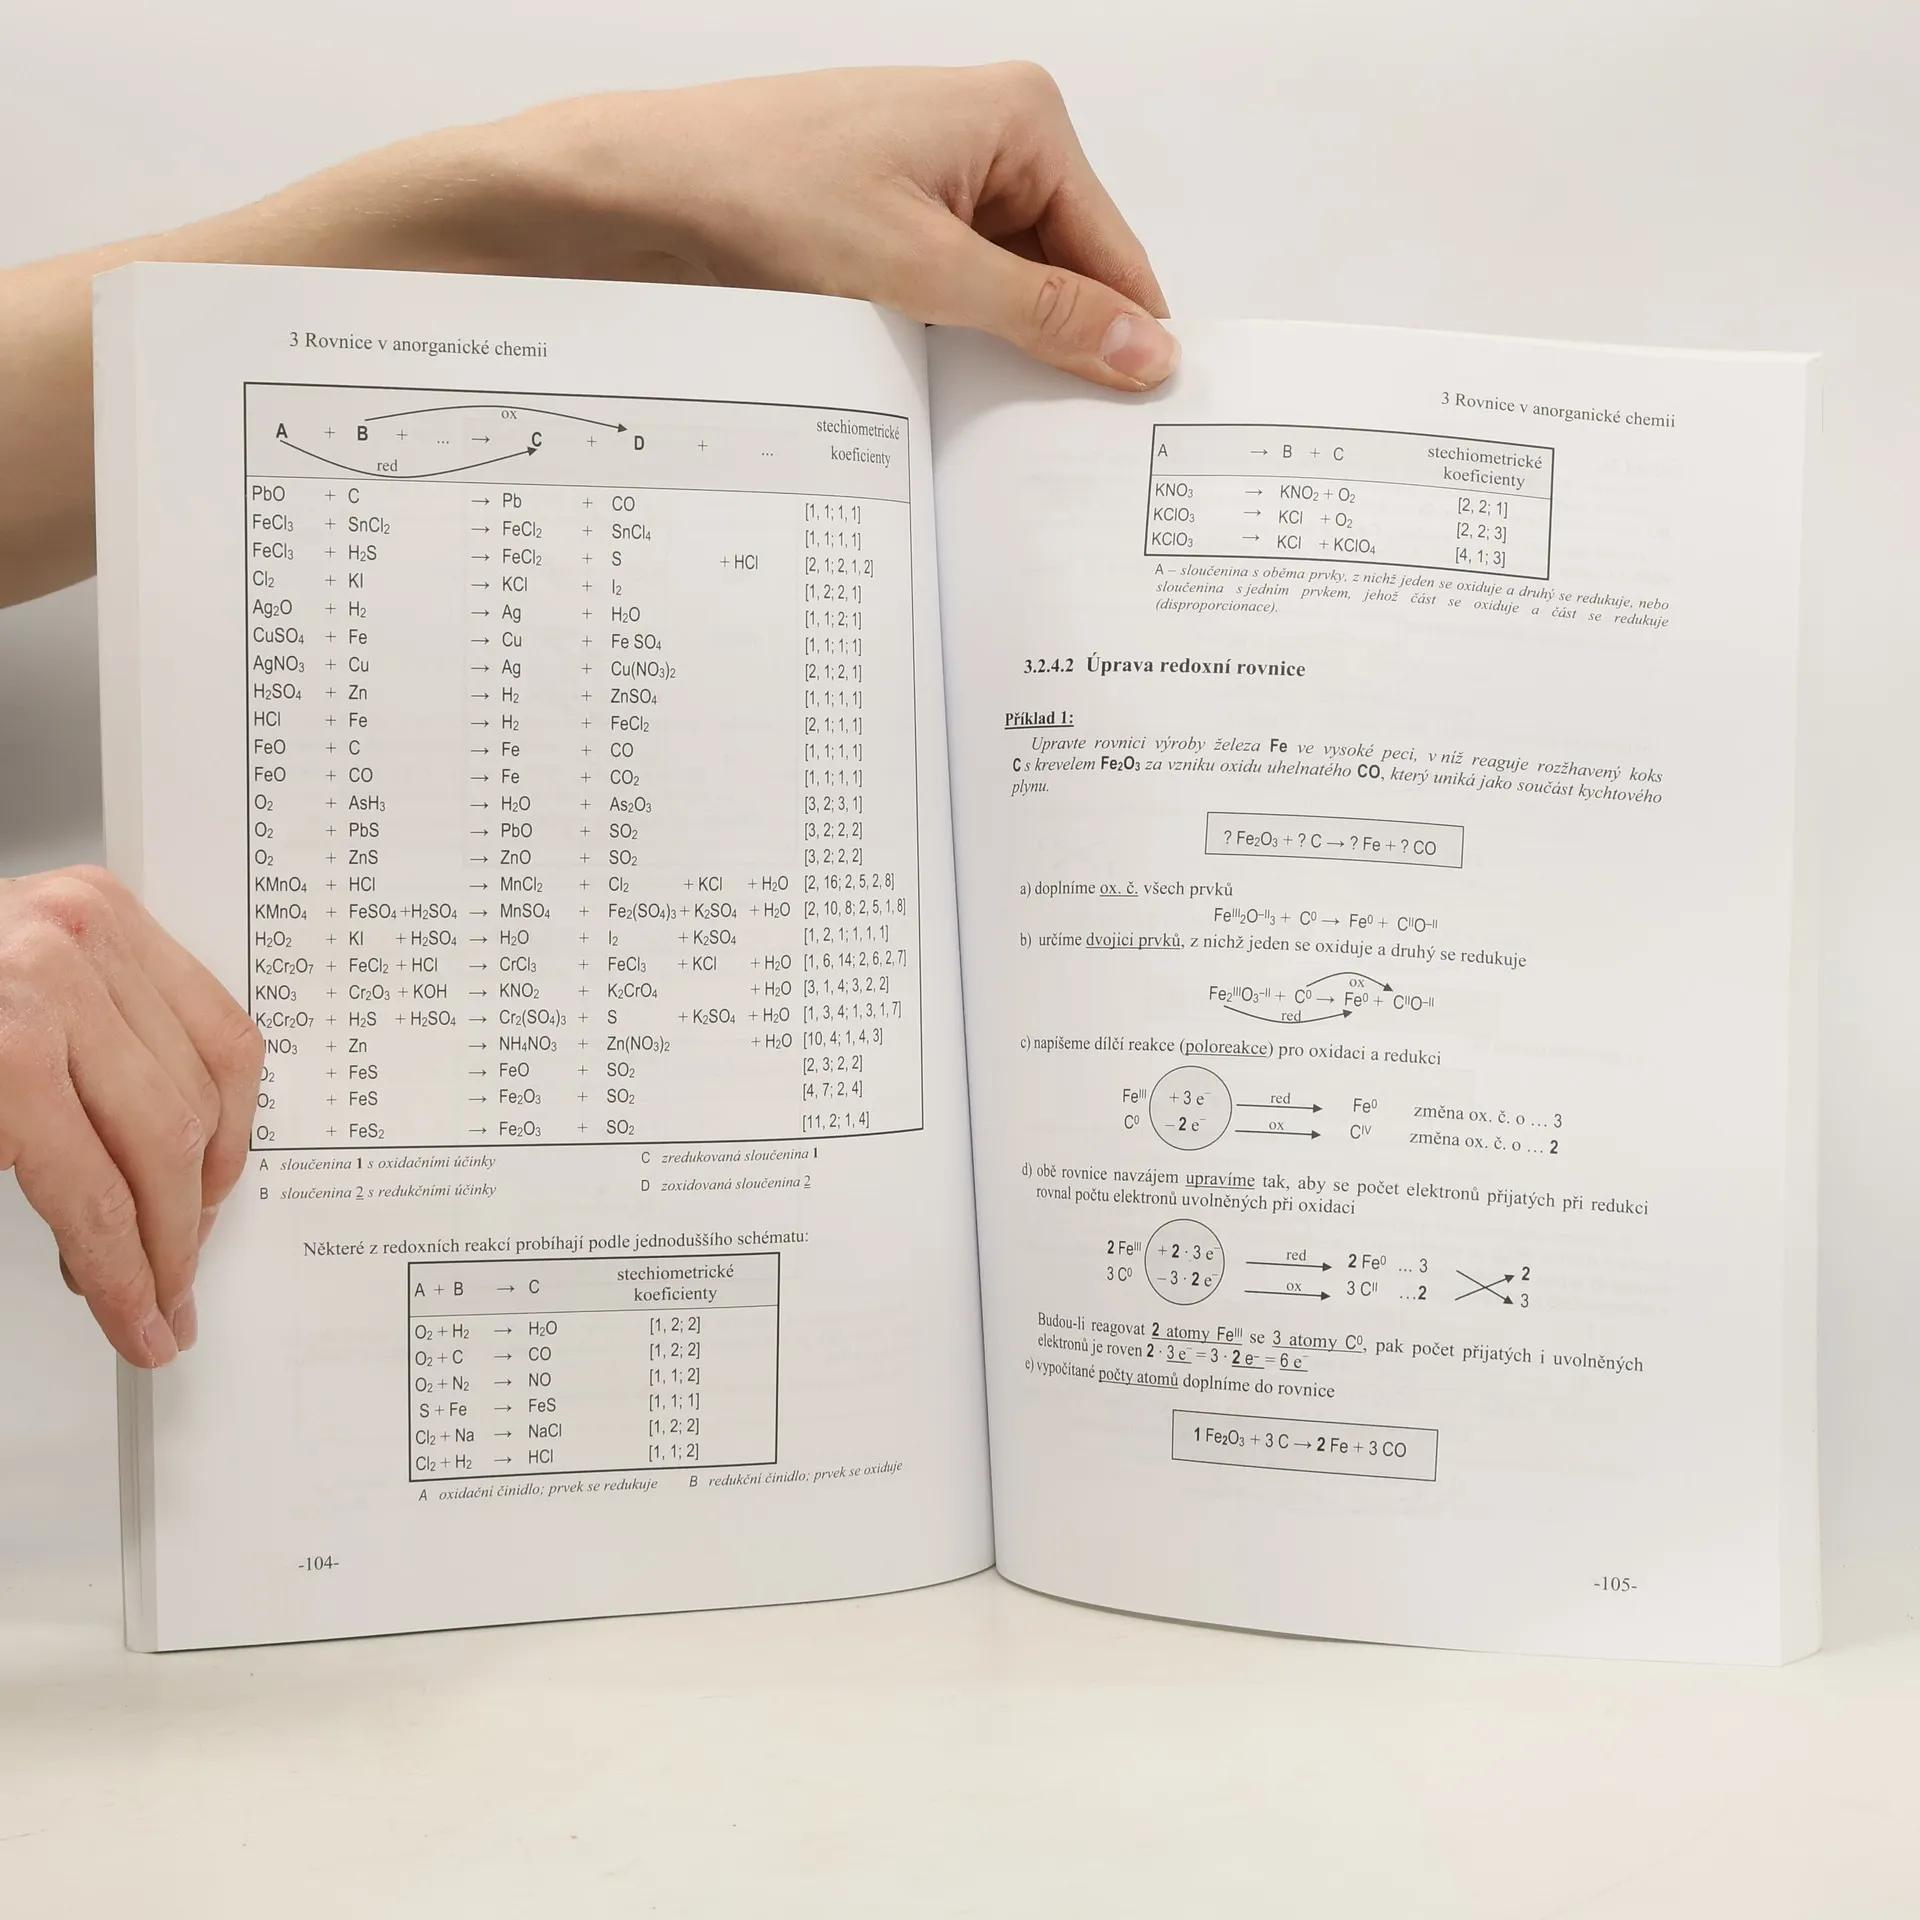 3 Rovnice v anorganické chemii
ox
A + B + ... → C + D + ... stechiometrické koeficienty
red
PbO + C → Pb + CO [1, 1; 1, 1]
FeCl₃ + SnCl₂ → FeCl₂ + SnCl₄ [1, 1; 1, 1]
FeCl₃ + H₂S → FeCl₂ + S + HCl [2, 1; 2, 1, 2]
Cl₂ + KI → KCl + I₂ [1, 2; 2, 1]
Ag₂O + H₂ → Ag + H₂O [1, 1; 2; 1]
CuSO₄ + Fe → Cu + Fe SO₄ [1, 1; 1; 1]
AgNO₃ + Cu → Ag + Cu(NO₃)₂ [2, 1; 2, 1]
H₂SO₄ + Zn → H₂ + ZnSO₄ [1, 1; 1, 1]
HCl + Fe → H₂ + FeCl₂ [2, 1; 1, 1]
FeO + C → Fe + CO [1, 1; 1, 1]
FeO + CO → Fe + CO₂ [1, 1; 1, 1]
O₂ + AsH₃ → H₂O + As₂O₃ [3, 2; 3, 1]
O₂ + PbS → PbO + SO₂ [3, 2; 2, 2]
O₂ + ZnS → ZnO + SO₂ [3, 2; 2, 2]
KMnO₄ + HCl → MnCl₂ + Cl₂ + KCl + H₂O [2, 16; 2, 5, 2, 8]
KMnO₄ + FeSO₄ +H₂SO₄ → MnSO₄ + Fe₂(SO₄)₃ + K₂SO₄ + H₂O [2, 10, 8; 2, 5, 1, 8]
H₂O₂ + KI + H₂SO₄ → H₂O + I₂ + K₂SO₄ [1, 2, 1; 1, 1, 1]
K₂Cr₂O₇ + FeCl₂ + HCl → CrCl₃ + FeCl₃ + KCl + H₂O [1, 6, 14; 2, 6, 2, 7]
KNO₃ + Cr₂O₃ + KOH → KNO₂ + K₂CrO₄ + H₂O [3, 1, 4; 3, 2, 2]
K₂Cr₂O₇ + H₂S + H₂SO₄ → Cr₂(SO₄)₃ + S + K₂SO₄ + H₂O [1, 3, 4; 1, 3, 1, 7]
NO₃ + Zn → NH₄NO₃ + Zn(NO₃)₂ + H₂O [10, 4; 1, 4, 3]
O₂ + FeS → FeO + SO₂ [2, 3; 2, 2]
O₂ + FeS → Fe₂O₃ + SO₂ [4, 7; 2, 4]
O₂ + FeS₂ → Fe₂O₃ + SO₂ [11, 2; 1, 4]
A sloučenina 1 s oxidačními účinky C zredukovaná sloučenina 1
B sloučenina 2 s redukčními účinky D zoxidovaná sloučenina 2
Některé z redoxních reakcí probíhají podle jednoduššího schématu:
A + B → C stechiometrické koeficienty
O₂ + H₂ → H₂O [1, 2; 2]
O₂ + C → CO [1, 2; 2]
O₂ + N₂ → NO [1, 1; 2]
S + Fe → FeS [1, 1; 1]
Cl₂ + Na → NaCl [1, 2; 2]
Cl₂ + H₂ → HCl [1, 1; 2]
A oxidační činidlo; prvek se redukuje B redukční činidlo; prvek se oxiduje
-104-
3 Rovnice v anorganické chemii
A → B + C stechiometrické koeficienty
KNO₃ → KNO₂ + O₂ [2, 2; 1]
KClO₃ → KCl + O₂ [2, 2; 3]
KClO₃ → KCl + KClO₄ [4, 1; 3]
A – sloučenina s oběma prvky, z nichž jeden se oxiduje a druhý se redukuje, nebo
sloučenina s jedním prvkem, jehož část se oxiduje a část se redukuje
(disproporcionace).
3.2.4.2 Úprava redoxní rovnice
Příklad 1:
Upravte rovnici výroby železa Fe ve vysoké peci, v níž reaguje rozžhavený koks
C s krevelem Fe₂O₃ za vzniku oxidu uhelnatého CO, který uniká jako součást kychtového
plynu.
? Fe₂O₃ + ? C → ? Fe + ? CO
a) doplníme ox. č. všech prvků
Feᴵᴵᴵ₂O⁻ᴵᴵ₃ + C⁰ → Fe⁰ + CᴵᴵO⁻ᴵᴵ
b) určíme dvojici prvků, z nichž jeden se oxiduje a druhý se redukuje
ox
Fe₂ᴵᴵᴵO₃⁻ᴵᴵ + C⁰ → Fe⁰ + CᴵᴵO⁻ᴵᴵ
red
c) napíšeme dílčí reakce (poloreakce) pro oxidaci a redukci
Feᴵᴵᴵ + 3 e⁻ red Fe⁰ změna ox. č. o ... 3
C⁰ – 2 e⁻ ox Cᴵⱽ změna ox. č. o ... 2
d) obě rovnice navzájem upravíme tak, aby se počet elektronů přijatých při redukci
rovnal počtu elektronů uvolněných při oxidaci
2 Feᴵᴵᴵ + 2 · 3 e⁻ red 2 Fe⁰ ... 3 2
3 C⁰ – 3 · 2 e⁻ ox 3 Cᴵᴵ ...2 3
Budou-li reagovat 2 atomy Feᴵᴵᴵ se 3 atomy C⁰, pak počet přijatých i uvolněných
elektronů je roven 2 · 3 e⁻ = 3 · 2 e⁻ = 6 e⁻
e) vypočítané počty atomů doplníme do rovnice
1 Fe₂O₃ + 3 C → 2 Fe + 3 CO
-105-